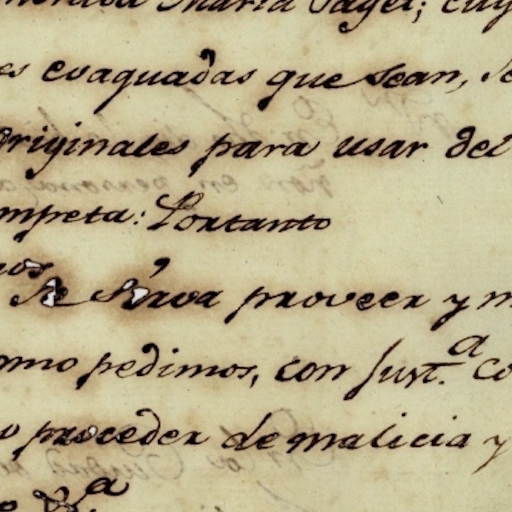 Maria Pager; cuy
es evaquadas que sean, se
originales para usar del
mpeta: Portanto
mos
se sirva proveer y m
omo pedimos, con Just.a co
o proceder de malicia y